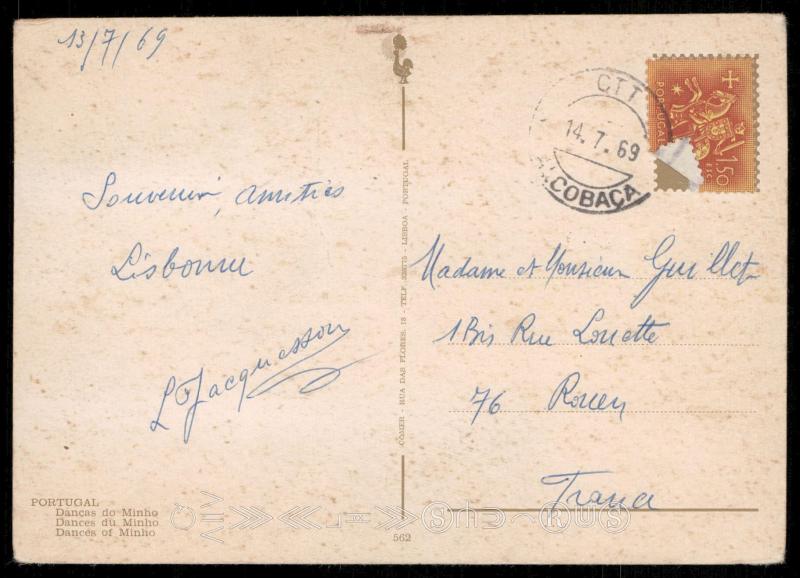 13/7/69
Souvenir, amitiés
Lisbonne
L Jacquesson
PORTUGAL
Danças do Minho
Dances du Minho
Dances of Minho
COMER - RUA DAS FLORES, 18 - TELF. - LISBOA - PORTUGAL
562
CTT
14.7.69
ALCOBAÇA
PORTUGAL
1$50
Madame et Monsieur Guillet
1 Bis Rue Louette
76 Rouen
France